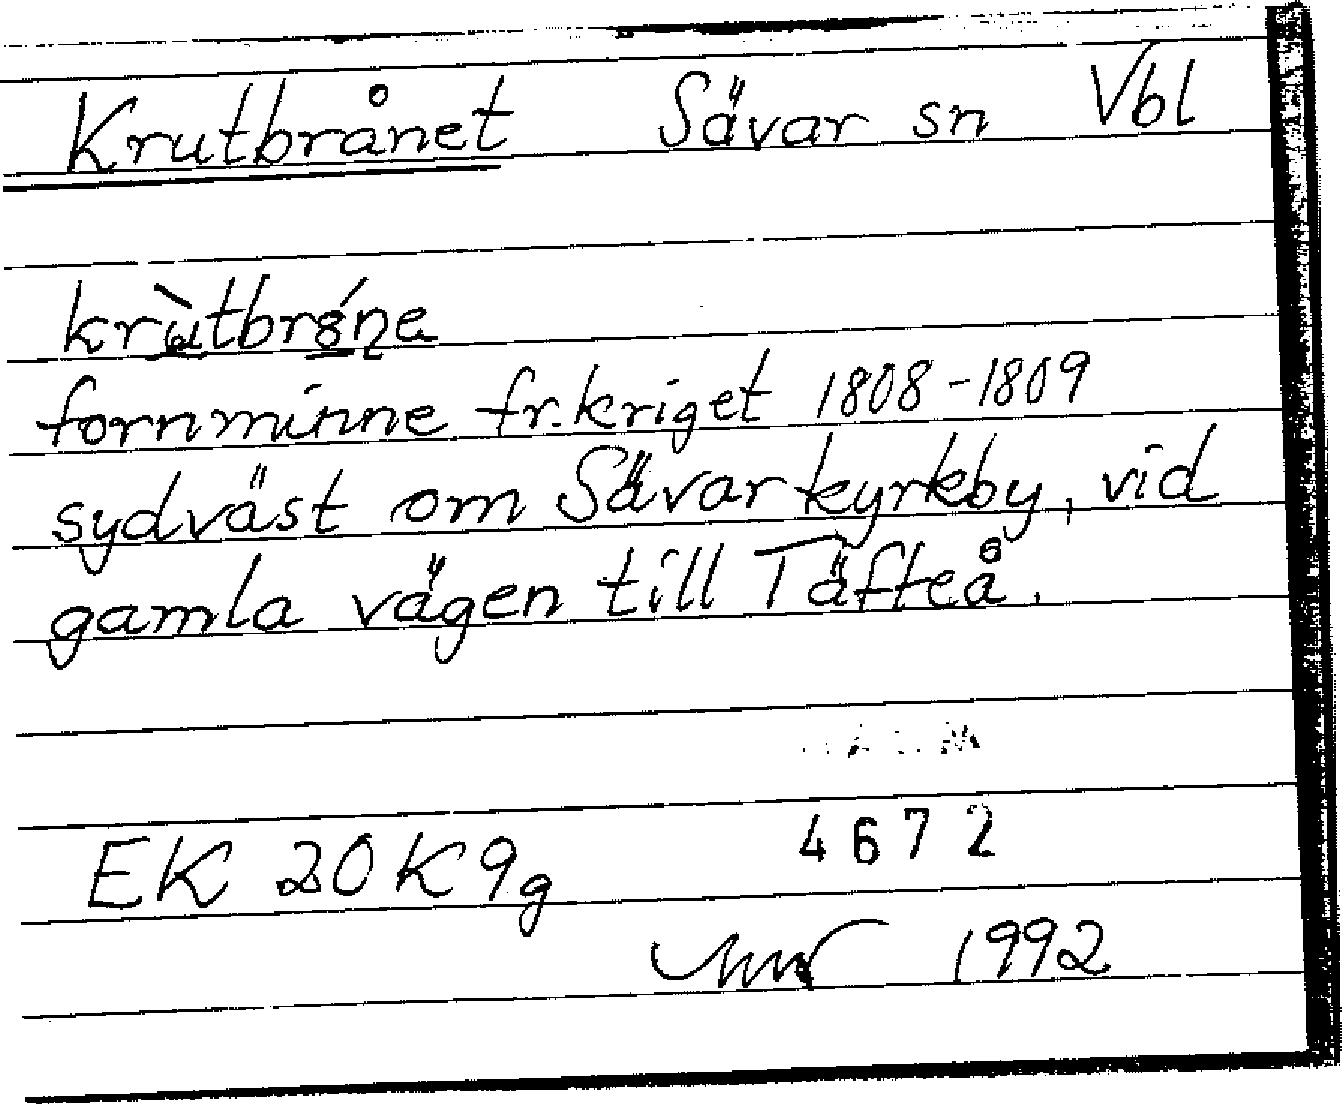 Krutbrånet Sävar sn Vbl
fornminne fr. kriget 1808-1809
sydväst om Sävar kyrkby, vid
gamla vägen till Täfteå.
EK 20K9g 4672
1992